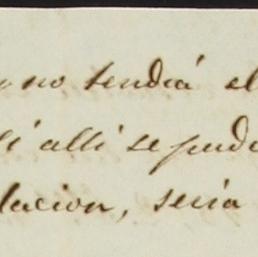 no tendrá el
alli se pudo
lacion, seria